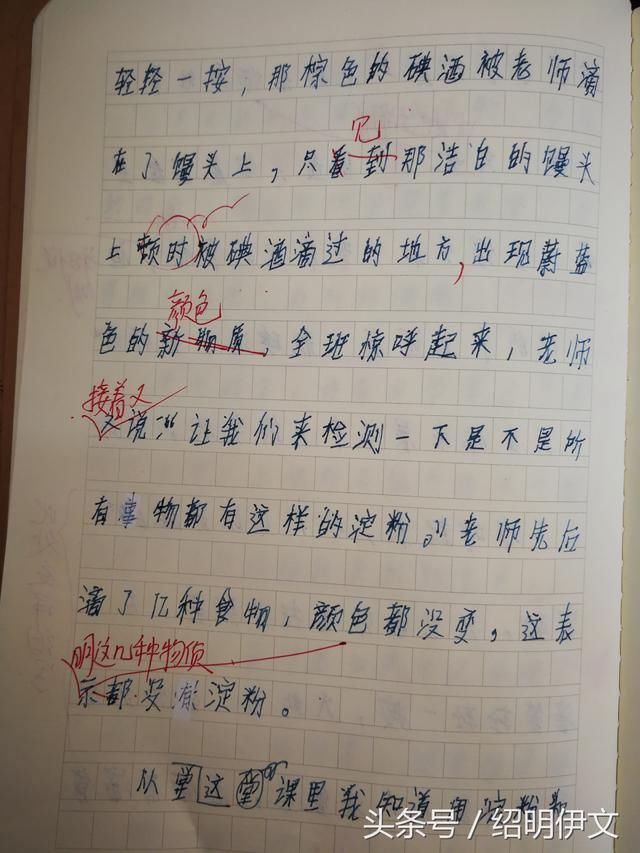 轻轻一按，那棕色的碘酒被老师滴
见
在了馒头上，只看到那洁白的馒头
上顿时被碘酒滴过的地方，出现蔚蓝
颜色
色的新物质，全班惊呼起来，老师
接着又
又说：“让我们来检测一下是不是所
有事物都有这样的淀粉。”老师先后
滴了几种食物，颜色都没变，这表
明这几种物质
示都没有淀粉。
从堂这堂课里我知道用淀粉
头条号/绍明伊文